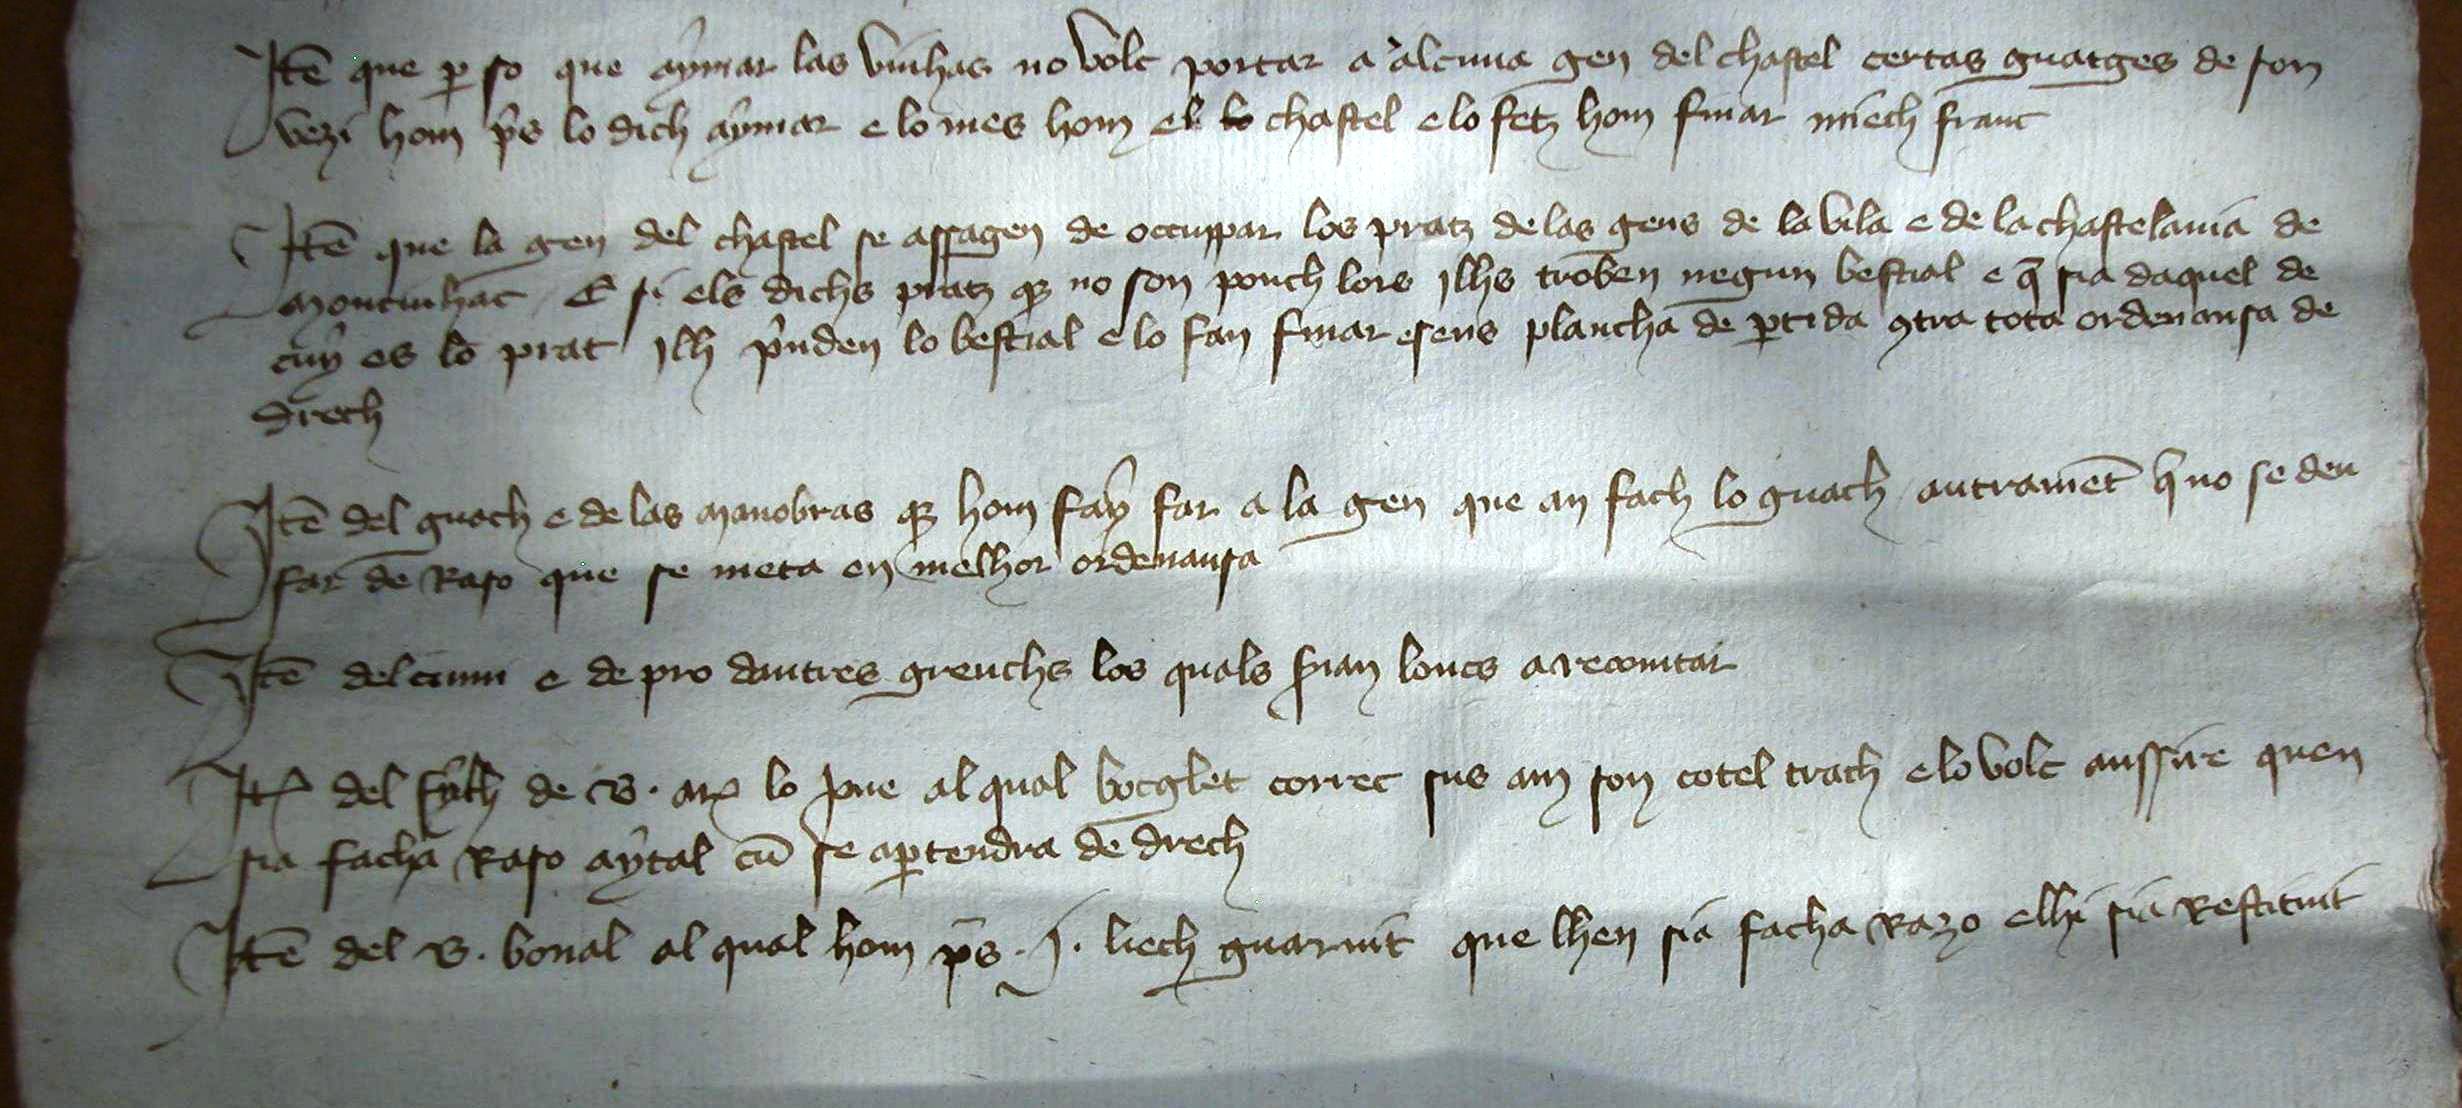 Itē que p so que aymar las vinhas no volc portar a alcuna gen del chastel certas guatges de son
vezi hom p̄s lo dich aymar e lo mes hom el chastel e lo fetz hom finar miech franc
Itē que la gen del chastel se assagen de occupar los pratz de las gens de la vila e de la chastelania de
Montinhac E si els dichs pratz q no son ponch lors Ilhs troben negun bestial e q̄ sia daquel de
cuy es lo prat Ilh p̄nden lo bestial e lo fan finar esens plancha de ptida 9tra tota ordenansa de
drech
Itē del guach e de las manobras q hom fay far a la gen que an fach lo guach autramēt q̄ no se deu
far de Raso que se meta en melhor ordenansa
Itē del cumi e de pro dautres greuchs los quals s̄ian loncs a recomtar
Itē del fylh de B. lo jove al qual bocglet correc sus am son cotel trach e lo volc aussire quen
sia facha Raso aytal cū se aptendra de drech
Itē del B. bonal al qual hom p̄s .j. liech guarnit que lhen sia facha Razo e lhi sia Restituit